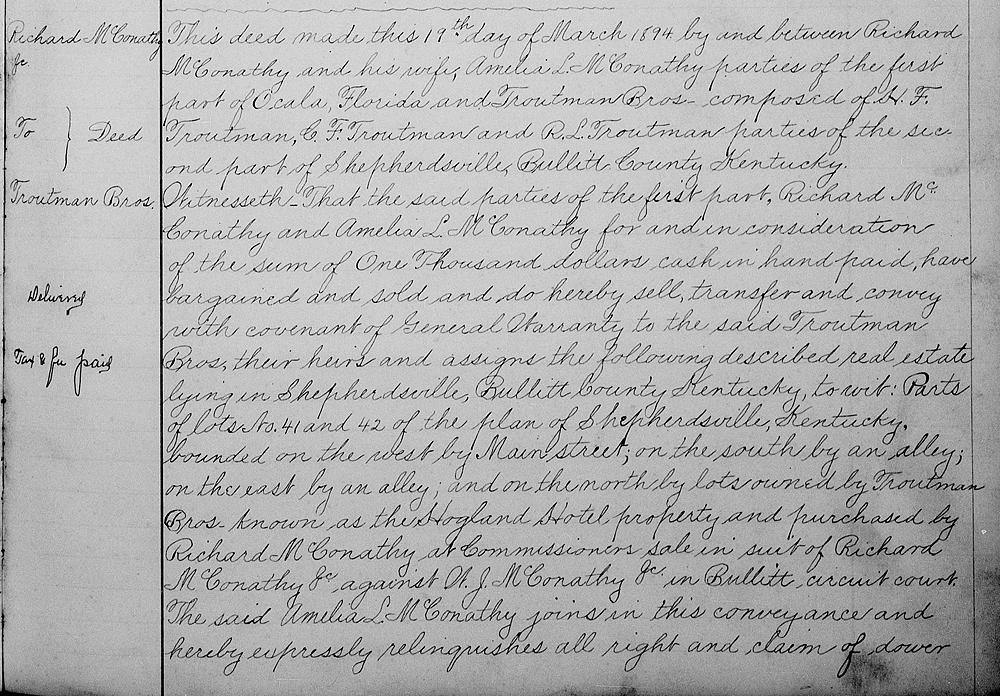 Richard McConathy
&c.
To } Deed
Troutman Bros.
Delivered
Tax & fee paid
This deed made this 19th day of March 1894 by and between Richard
McConathy and his wife, Amelia L. McConathy parties of the first
part of Ocala, Florida and Troutman Bros- composed of H. F.
Troutman, C. F. Troutman and R. L. Troutman parties of the sec-
ond part of Shepherdsville, Bullitt County Kentucky.
Witnesseth- That the said parties of the first part, Richard Mc
Conathy and Amelia L. McConathy for and in consideration
of the sum of One Thousand dollars cash in hand paid, have
bargained and sold and do hereby sell, transfer and convey
with covenant of General Warranty to the said Troutman
Bros, their heirs and assigns the following described real estate
lying in Shepherdsville, Bullitt County Kentucky, to wit: Parts
of lots No. 41 and 42 of the plan of Shepherdsville, Kentucky,
bounded on the west by Main street; on the south by an alley;
on the east by an alley; and on the north by lots owned by Troutman
Bros- known as the Hogland Hotel property and purchased by
Richard McConathy at Commissioners sale in suit of Richard
McConathy &c against W. J. McConathy &c in Bullitt circuit court.
The said Amelia L. McConathy joins in this conveyance and
hereby expressly relinquishes all right and claim of dower